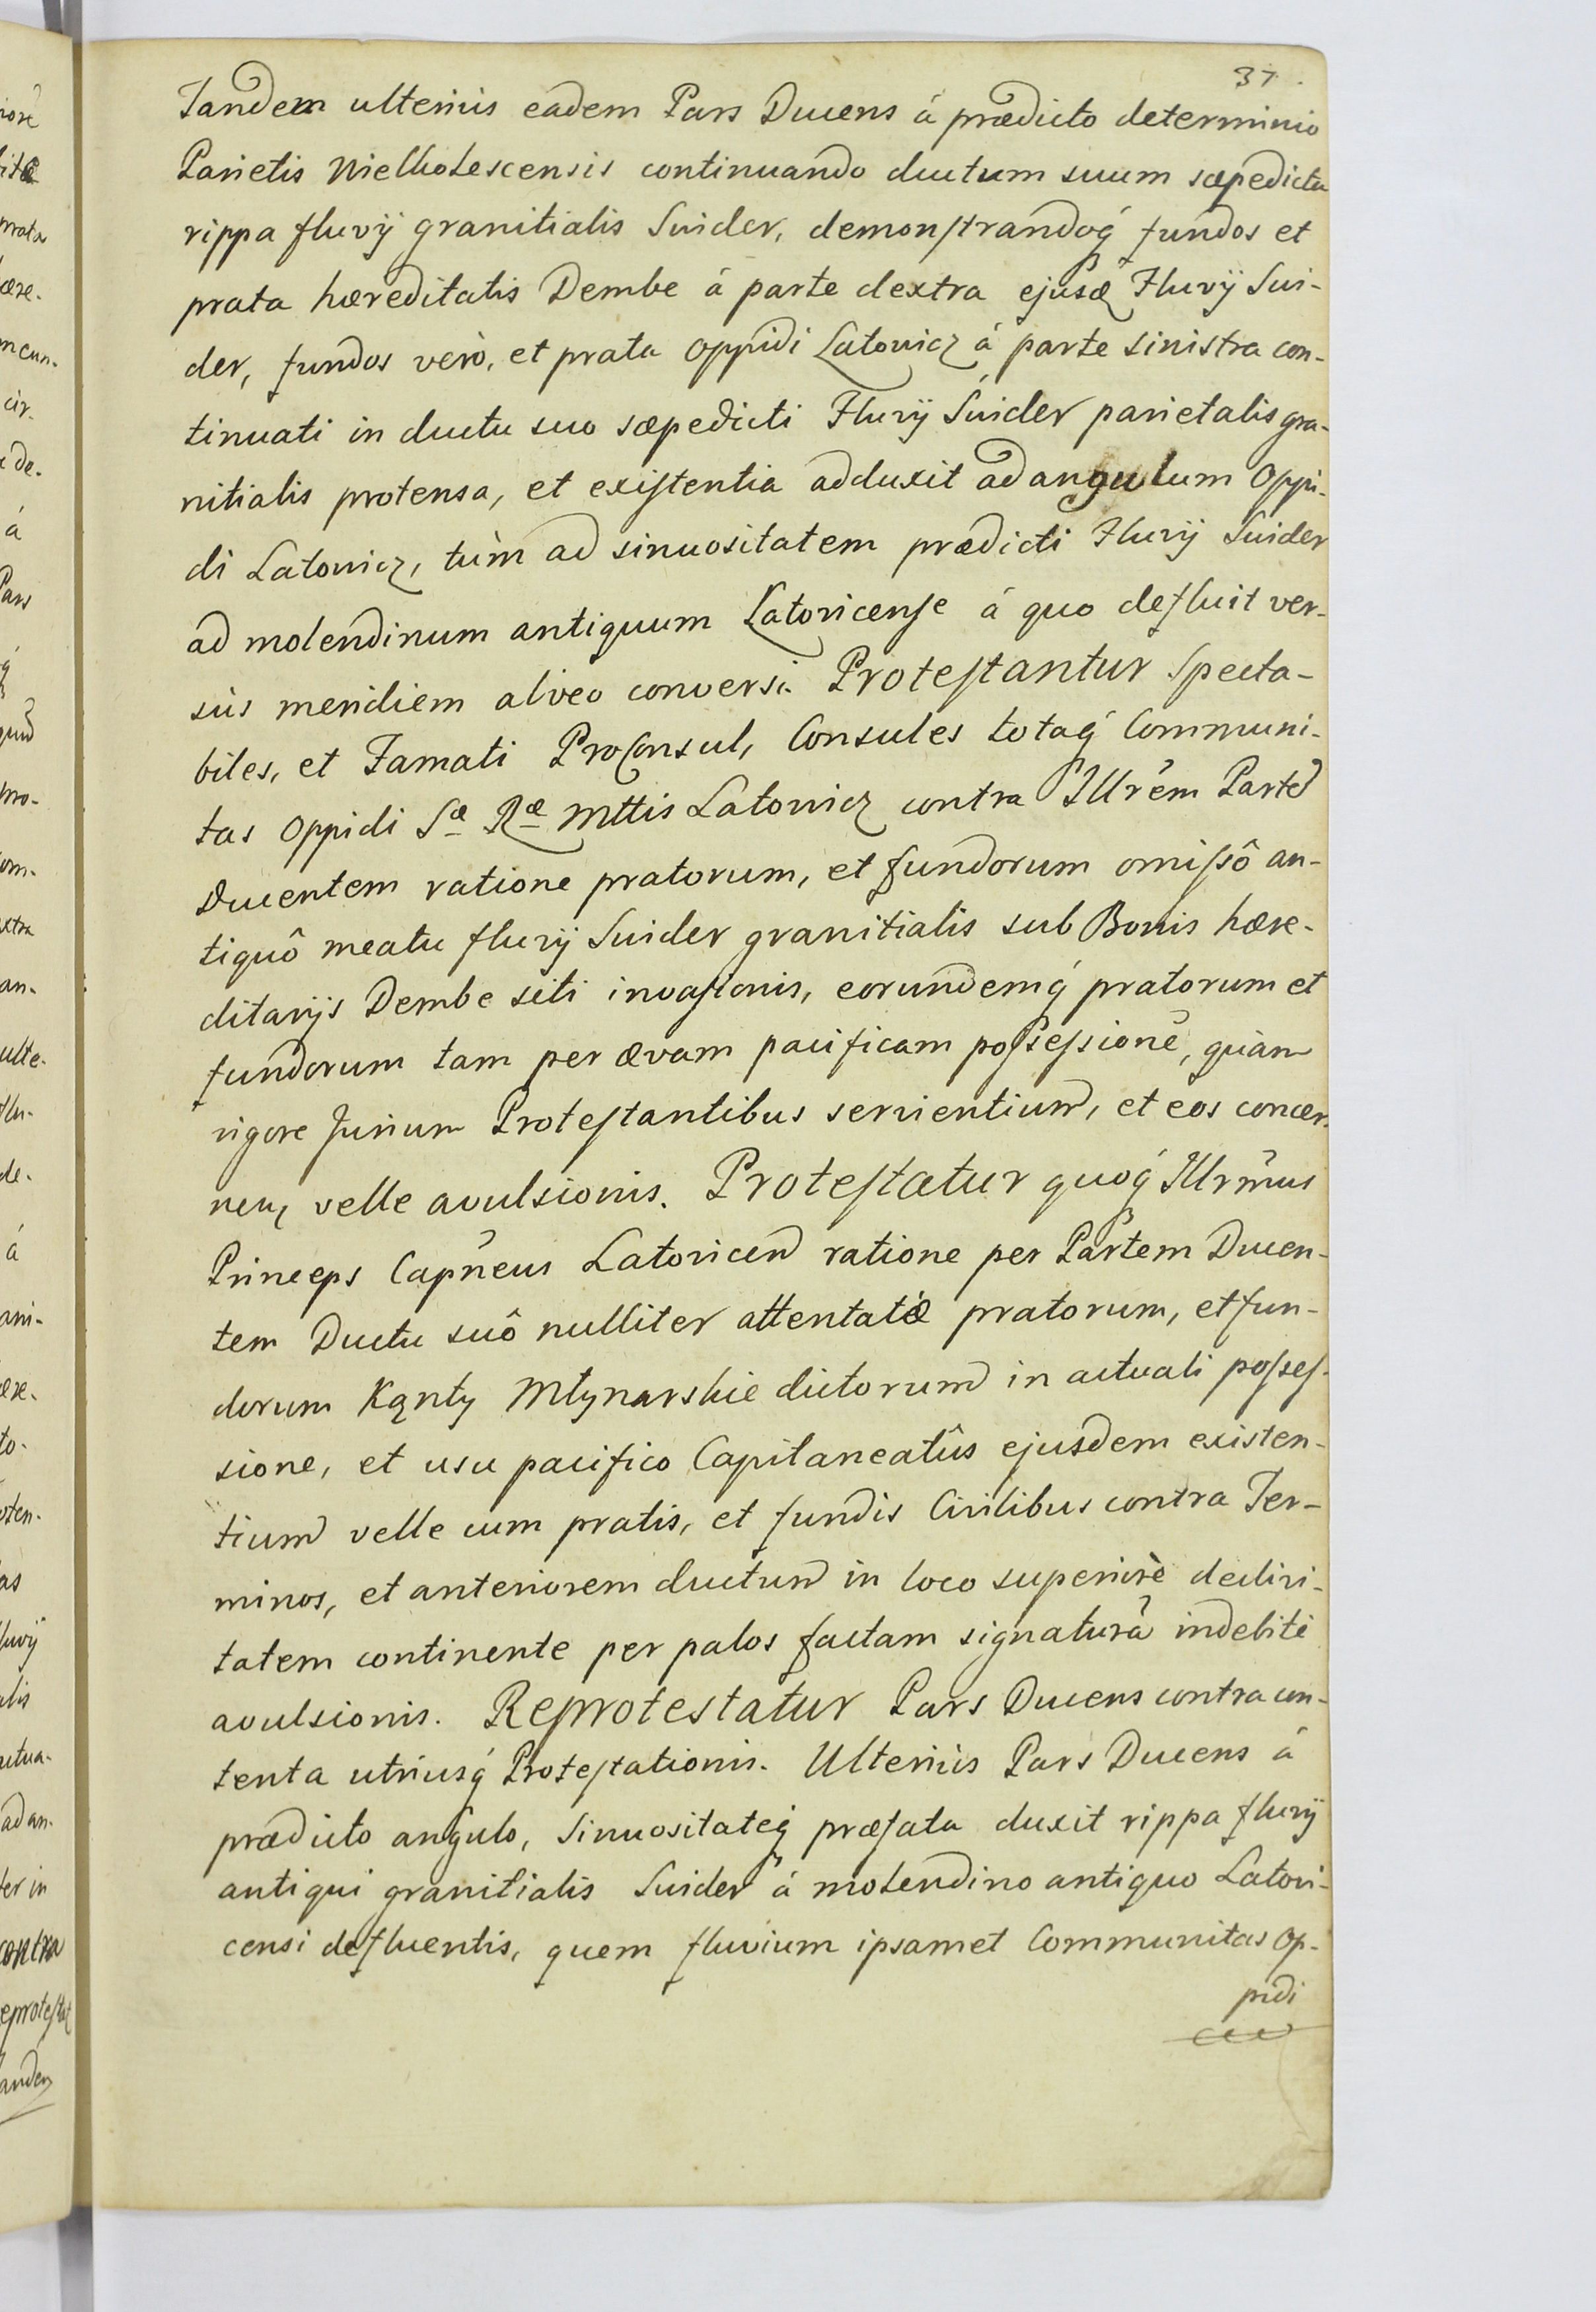 37.
Tandem ulteriùs eadem Pars Ducens á prædicto determinio
Parietis Wielholescensis continuando ductum suum sæpedicta
rippa fluvij granitialis Swider, demonstrandoq́ fundos et
prata hæreditatis Dembe á parte dextra ejusd Fluvij Swi-
der, fundos verò, et prata oppidi Latowicz á parte sinistra con-
tinuati in ductu suo sæpedicti Fluvij Swider parietalis gra-
nitialis protensa, et existentia adduxit ad angulum Oppi-
di Latowicz, tùm ad sinuositatem prædicti Fluvij Swider
ad molendinum antiquum Latovicense á quo defluit ver-
sùs meridiem alveo conversi. Protestantur Specta-
biles, et Famati ProConsul, Consules totaq́ Communi-
tas Oppidi Sæ Ræ Mttis Latowicz contra Illrem Parte
Ducentem ratione pratorum, et fundorum omissô an-
tiquô meatu fluvij Swider granitialis sub Bonis hære-
ditarijs Dembe siti invasionis, eorundemq́ pratorum et
fundorum tam per ævam pacificam possessione, quàm
vigore Jurium Protestantibus servientium, et eos concer-
nen, velle avulsionis. Protestatur quoq́ Illrmus
Princeps Capneus Latovicen ratione per Partem Ducen-
tem Ductu suô nulliter attentatæ pratorum, et fun-
dorum Kąnty Młynarskie dictorum in actuali posses-
sione, et usu pacifico Capitaneatûs ejusdem existen-
tium velle cum pratis, et fundis Civilibus contra Ter-
minos, et anteriorem ductum in loco superiorè declivi-
tatem continente per palos factam signatura indebitè
avulsionis. Reprotestatur Pars Ducens contra con-
tenta utriusq́ Protestationis. Ulteriùs Pars Ducens á
prædicto angulo, Sinuositateq́ præfata duxit rippa fluvij
antiqui granitialis Swider á molendino antiquo Latovi-
censi defluentis, quem fluvium ipsamet Communitas Op-
pidi